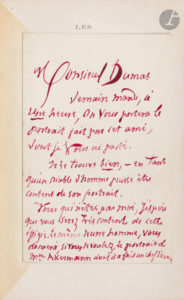 LES
Monsieur Dumas
Demain mardi, à
Une heure, On vous portera le
Portrait fait par cet ami,
dont je vous ai parlé.
Je le trouve bien, — en tant
qu'un diable d'homme puisse être
content de son portrait.
Vous qui n'êtes pas moi, j'espère
que vous serez très content de cette
le même homme, vous
donnera, si vous voulez, le portrait de
Mme Ackermann